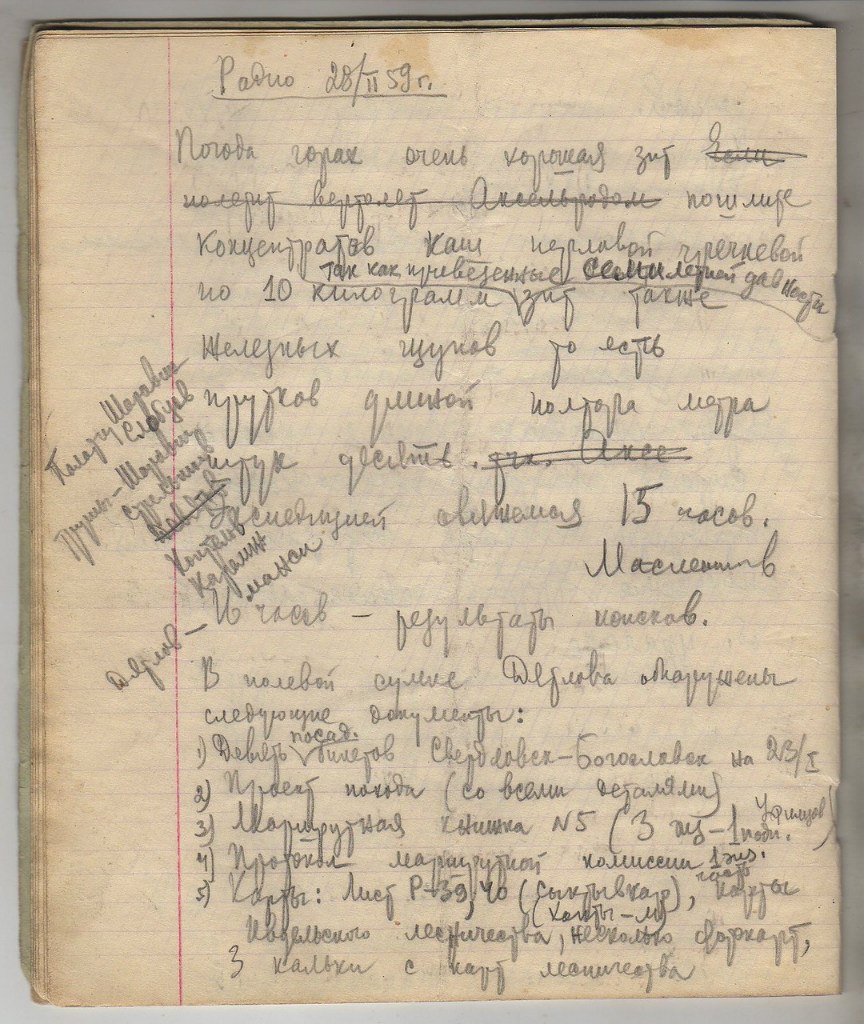 Радио 28/II 59 г.
Погода горах очень хорошая зпт Если
полетит вертолет Аксельродом пошлите
концентратов каш перловой гречневой
так как привезенные семилетней давности
по 10 килограмм зпт также
железных щупов то есть
прутков длиной полтора метра
штук десять. Аксе
Экспедицией свяжемся 15 часов.
Масленников
16 часов – результаты поисков.
В полевой сумке Дятлова обнаружены
следующие документы:
посад.
1) Девять билетов Свердловск–Богословск на 23/I
2) Проект похода (со всеми деталями)
3) Маршрутная книжка N5 (3 экз–1 подп. Уфимцев)
4) Протокол маршрутной комиссии 1 экз.
часть
5) Карты: Лист Р–39, 40 (Сыктывкар), карты
(Ханты–М)
Ивдельского лесничества, несколько фотокарт,
3 кальки с карт лесничества
Палатку Шаравин
Слобцов
Трупы – Шаравин
Коптелов
манси
Дятлов –